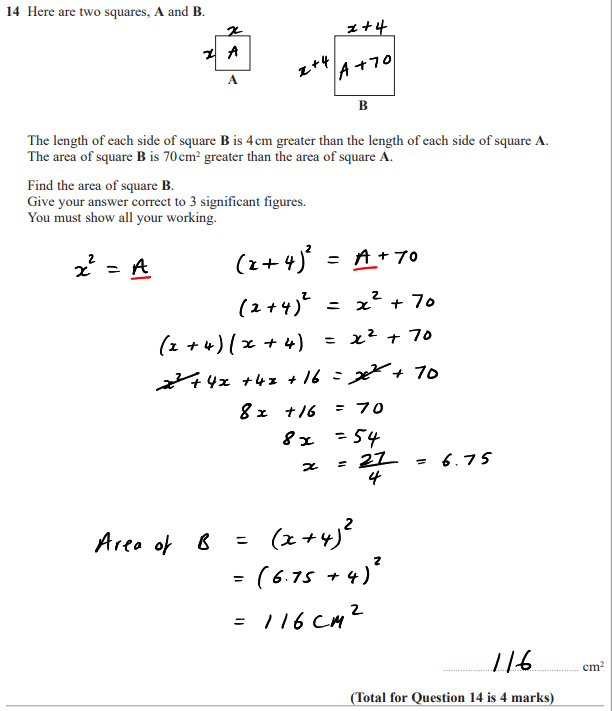 14 Here are two squares, A and B.
x
x A
A
x+4
x+4 A+70
B
The length of each side of square B is 4 cm greater than the length of each side of square A.
The area of square B is 70 cm² greater than the area of square A.
Find the area of square B.
Give your answer correct to 3 significant figures.
You must show all your working.
x² = A (x+4)² = A+70
(x+4)² = x² + 70
(x+4)(x+4) = x² + 70
x² + 4x + 4x + 16 = x² + 70
8x + 16 = 70
8x = 54
x = 27/4 = 6.75
Area of B = (x+4)²
= (6.75 + 4)²
= 116 cm²
116 cm²
(Total for Question 14 is 4 marks)